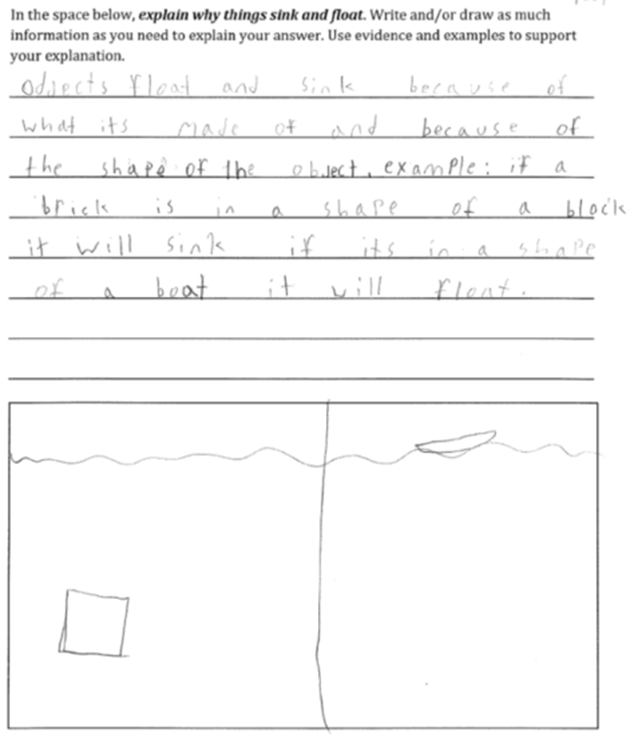 In the space below, explain why things sink and float. Write and/or draw as much
information as you need to explain your answer. Use evidence and examples to support
your explanation.
Objects float and sink because of
what its made of and because of
the shape of the object. example: if a
brick is in a shape of a block
it will sink if its in a shape
of a boat it will float.